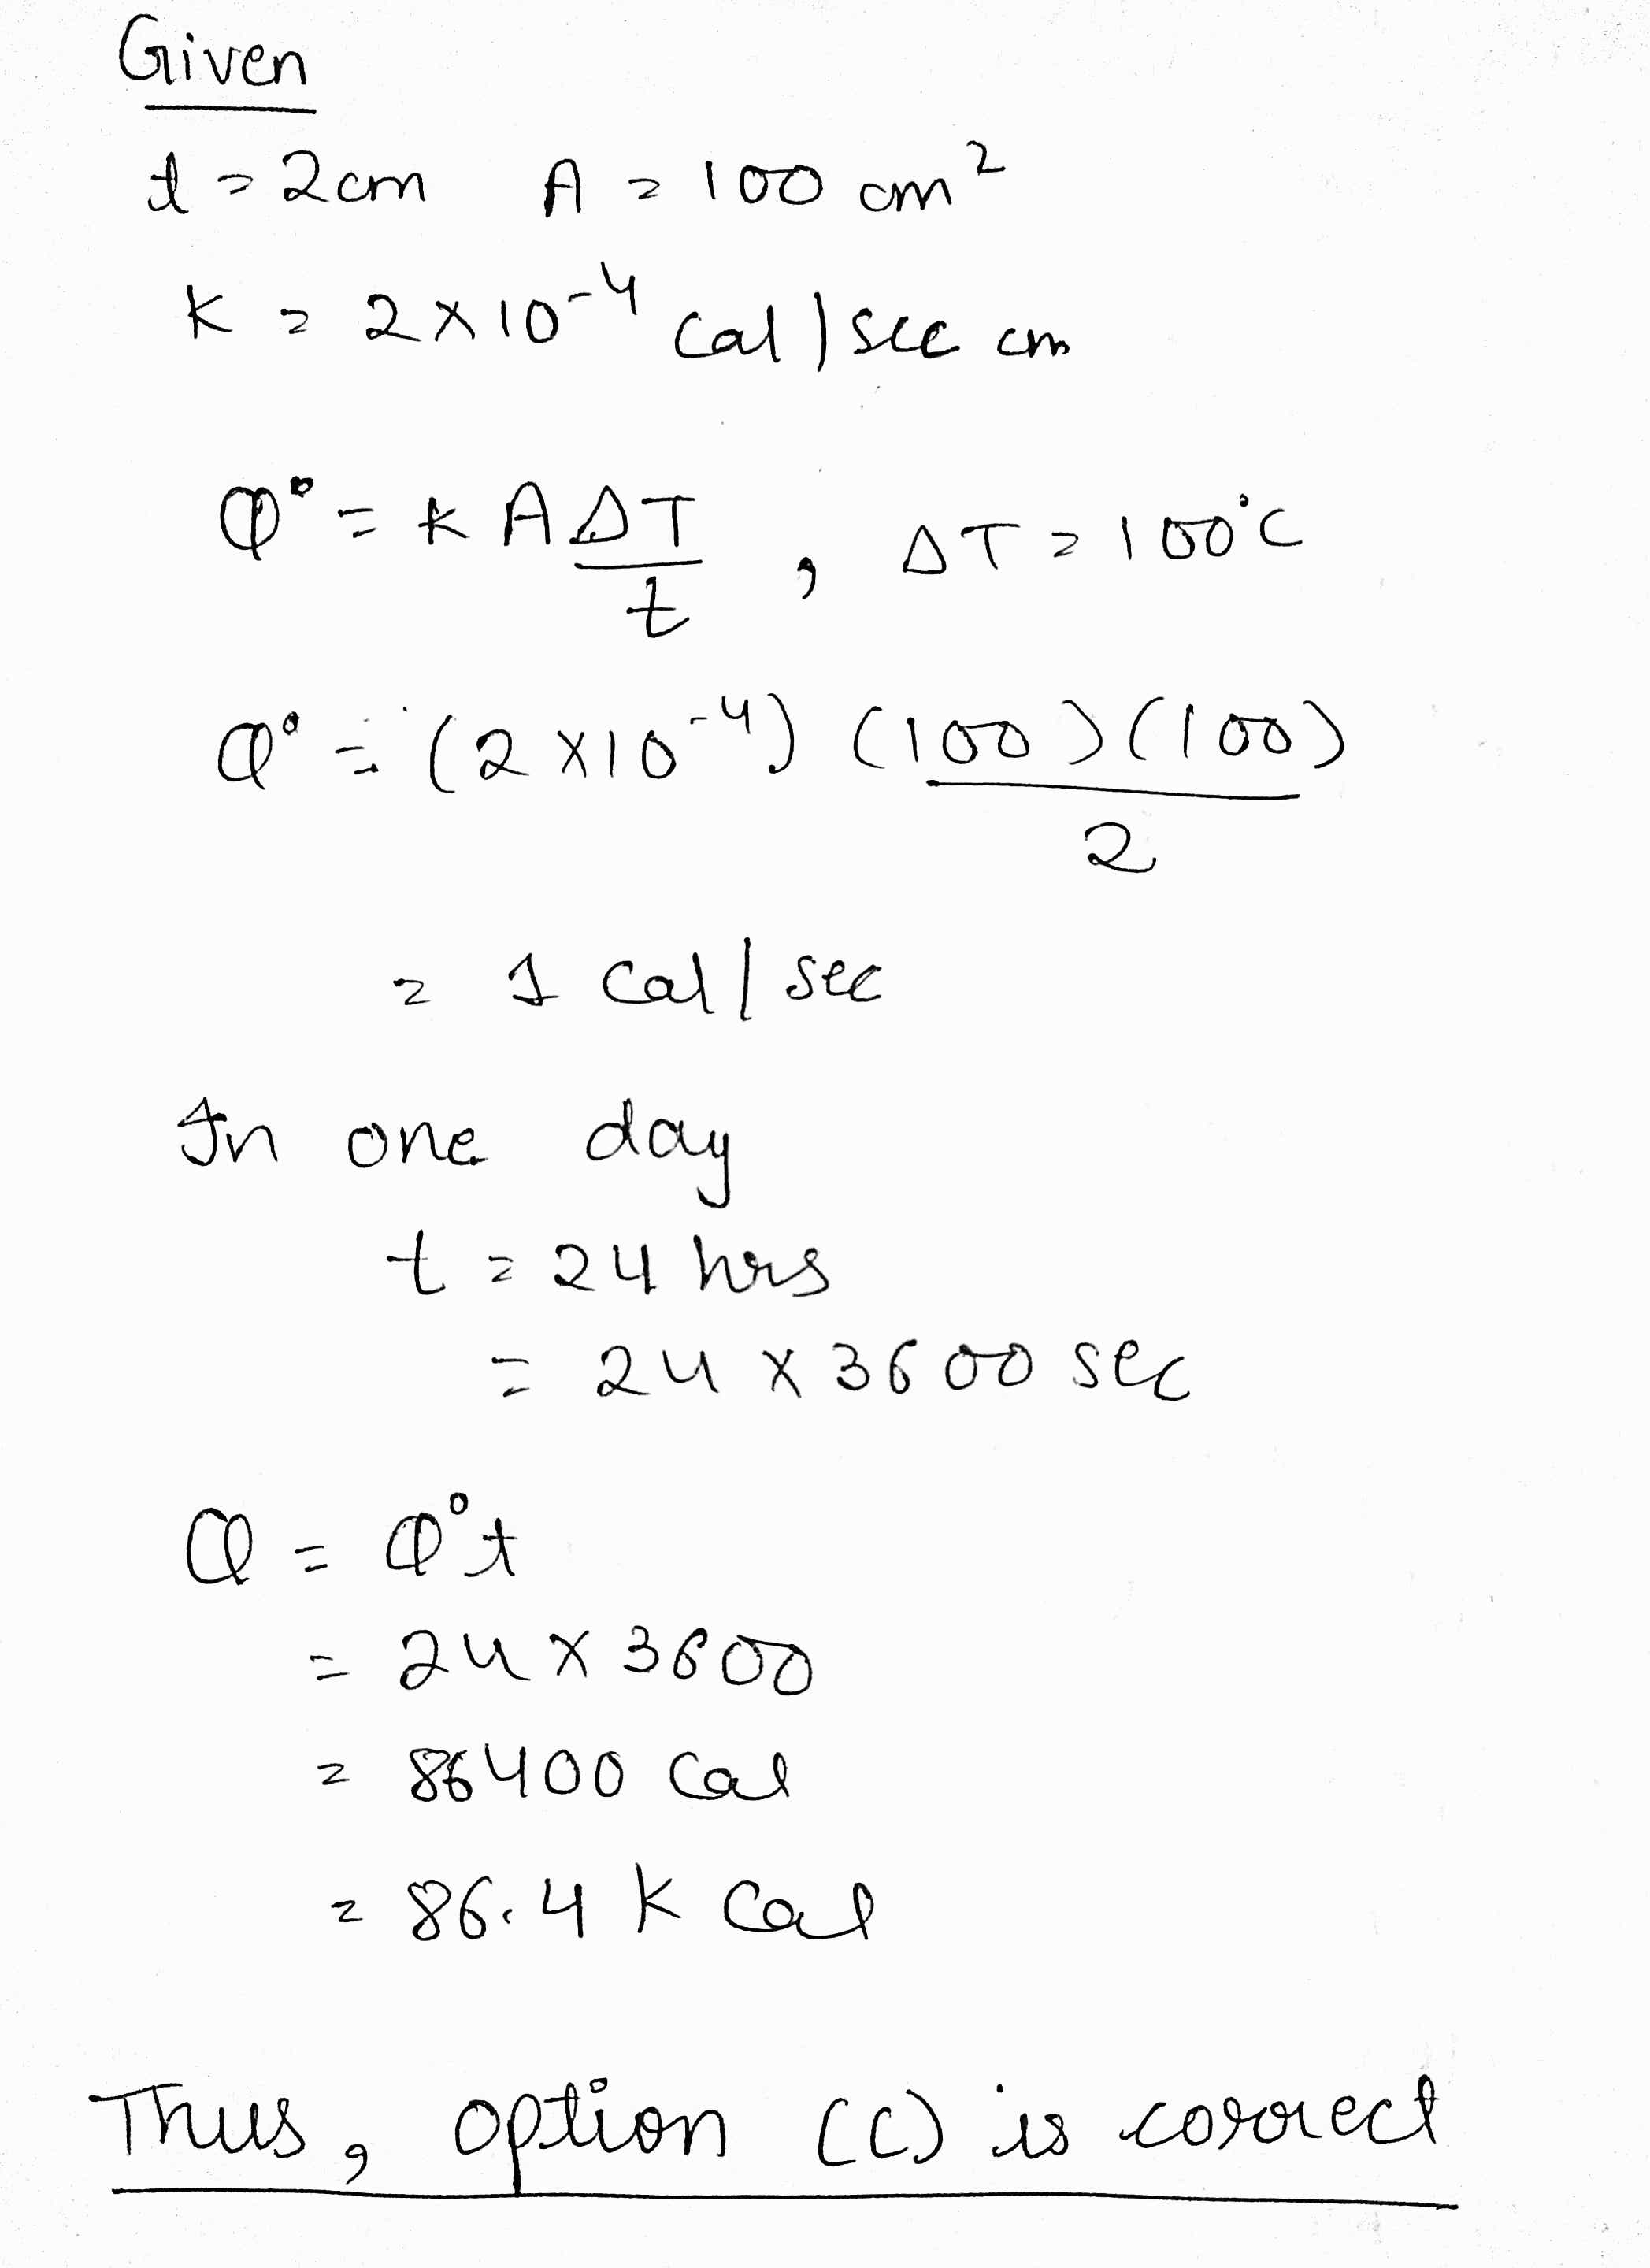 Given
t = 2cm A = 100 cm²
K = 2×10⁻⁴ cal/sec cm
Q° = KAΔT/t , ΔT = 100°C
Q° = (2×10⁻⁴) (100)(100)/2
= 1 cal/sec
In one day
t = 24 hrs
= 24 × 3600 sec
Q = Q°t
= 24 × 3600
= 86400 cal
= 86.4 K cal
Thus, option (C) is correct